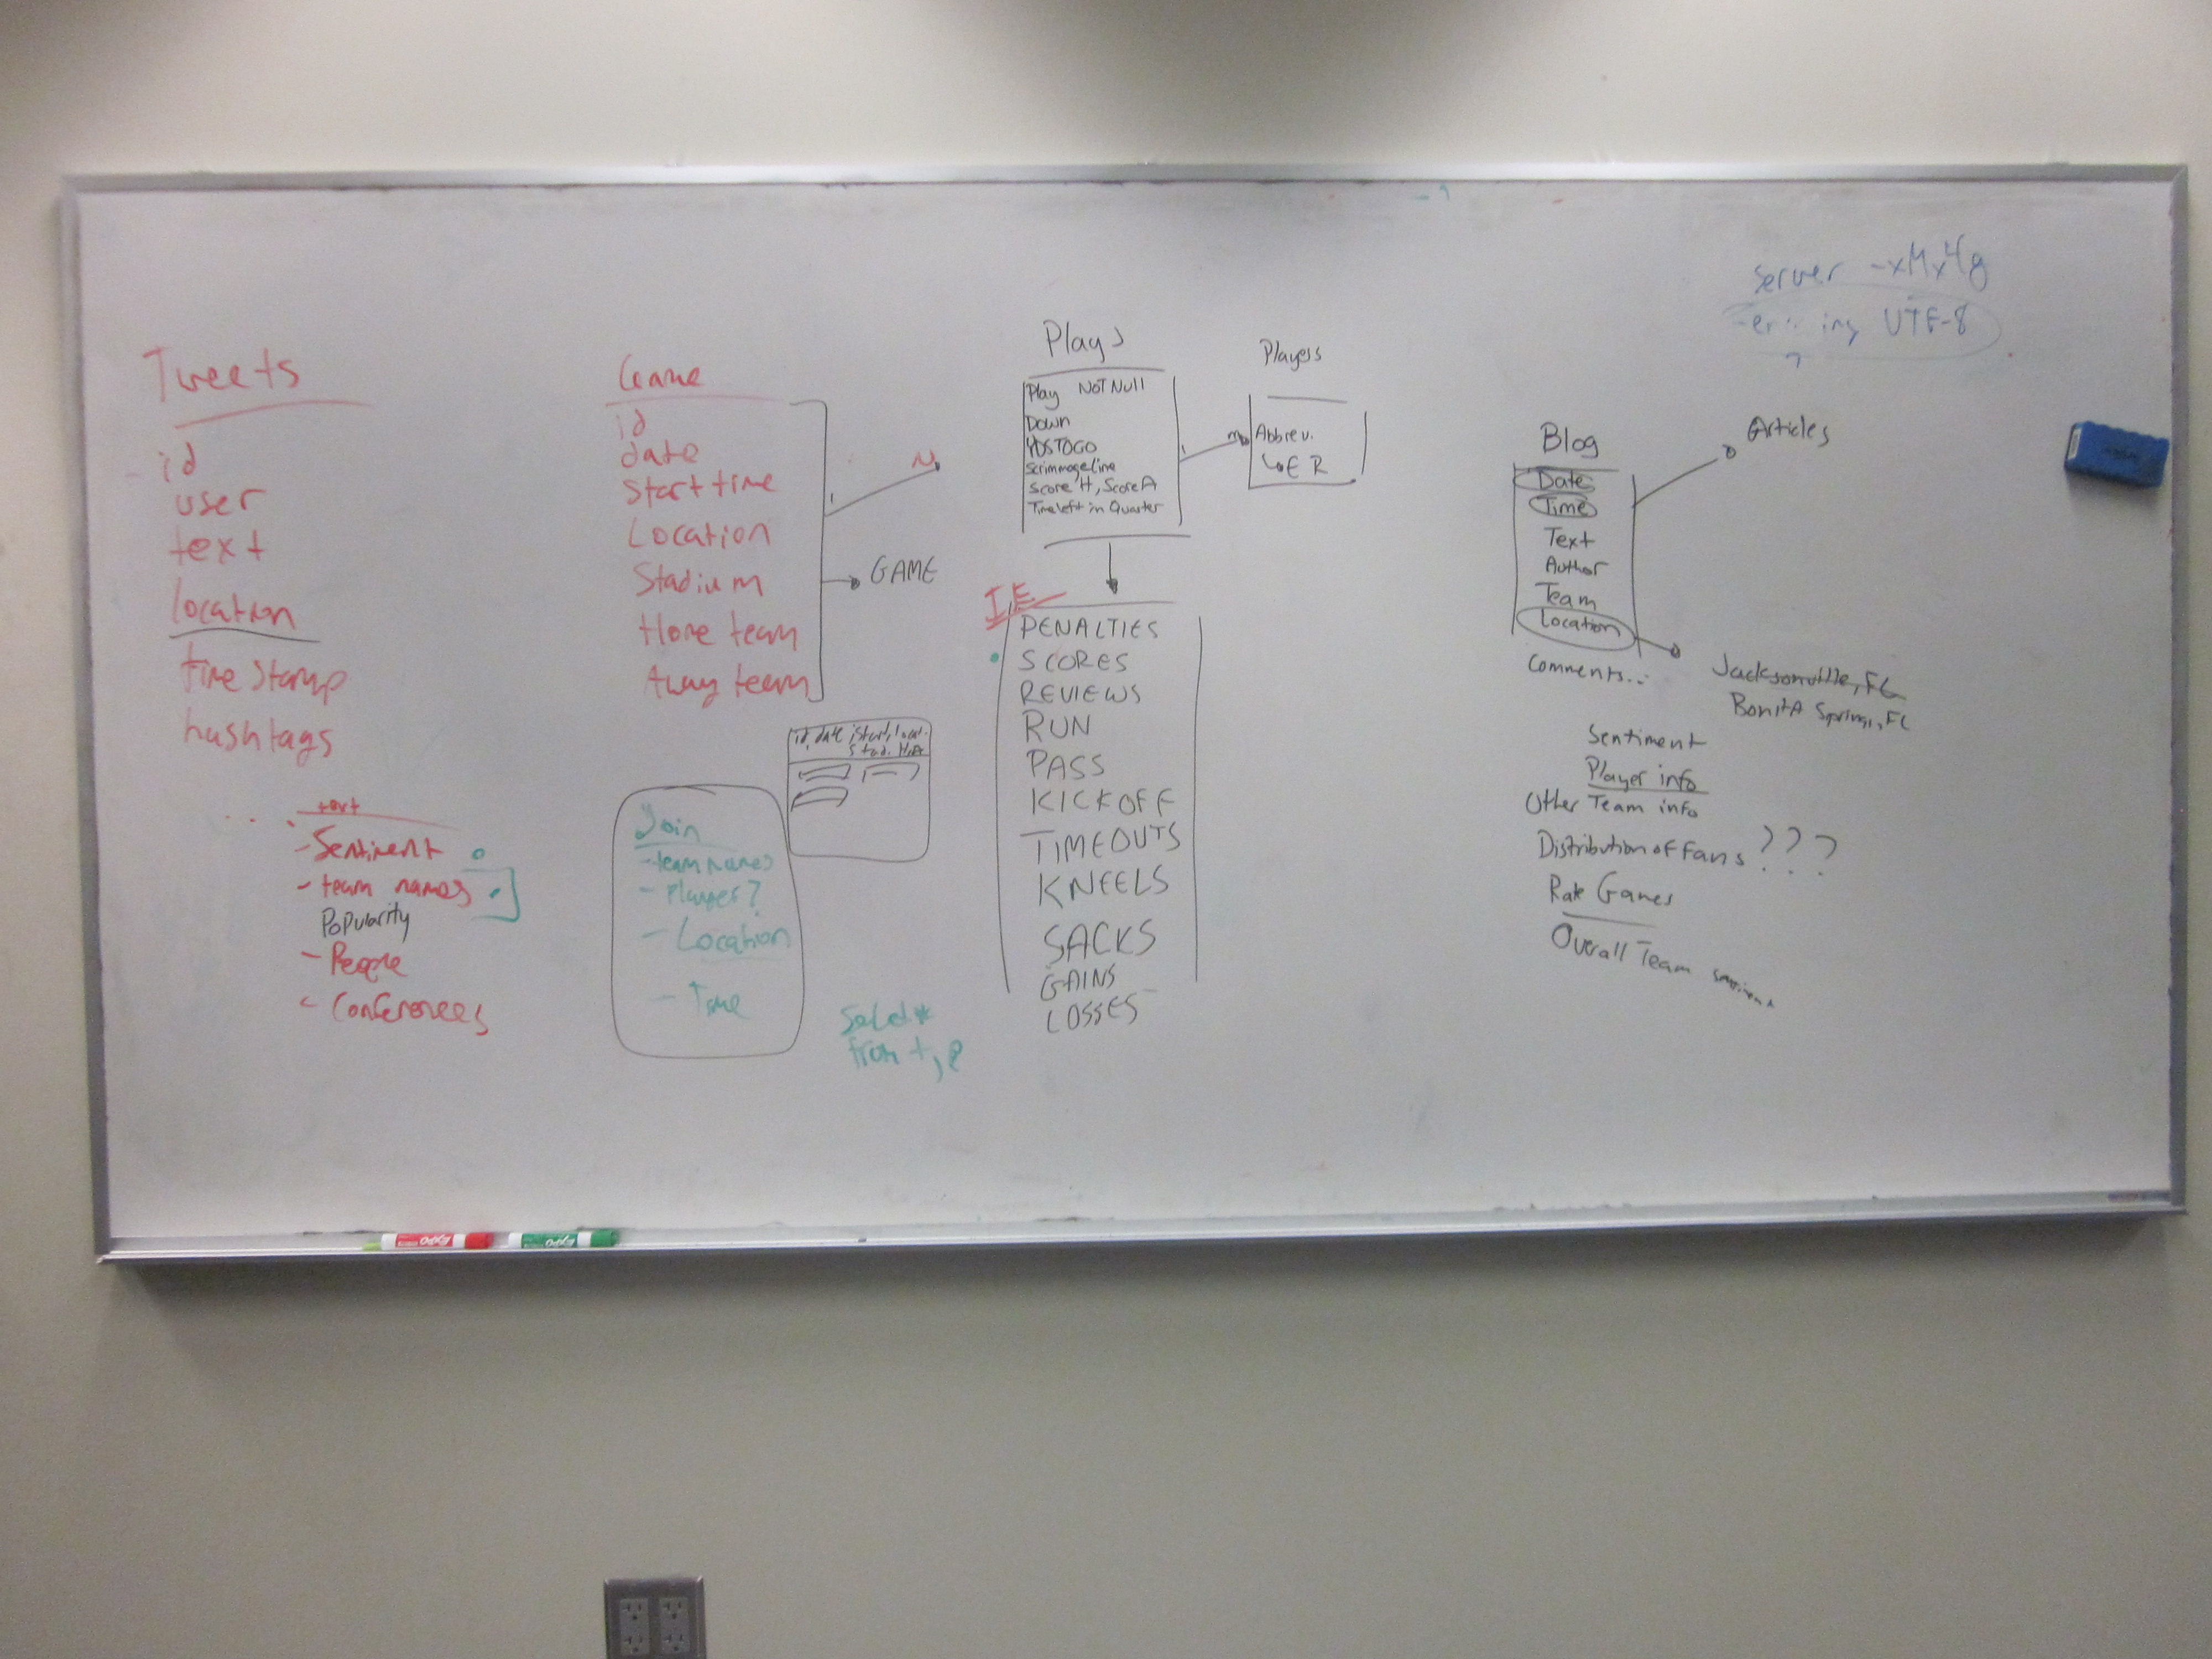 Tweets
id
user
text
location
time stamp
hashtags
text
- Sentiment
- team names
Popularity
- People
- Conferences
Game
id
date
Start time
Location
Stadium
Home team
Away team
1
N
GAME
id, date, start, locat.
Stad. H, A
Join
- team names
- Players?
- Location
- Time
Select *
from t, p
Plays
Play NOT Null
Down
YDSTOGO
Scrimmage Line
Score H, Score A
Time left in Quarter
1
m
Players
Abbrev.
ER
I.E.
PENALTIES
SCORES
REVIEWS
RUN
PASS
KICKOFF
TIMEOUTS
KNEELS
SACKS
GAINS
LOSSES
Server -xMx4g
UTF-8
Blog
Date
Time
Text
Author
Team
Location
Comments...
Articles
Jacksonville, FL
Bonita Springs, FL
Sentiment
Player info
Other Team info
Distribution of Fans ???
Rate Games
Overall Team sentiment
EXPO
EXPO